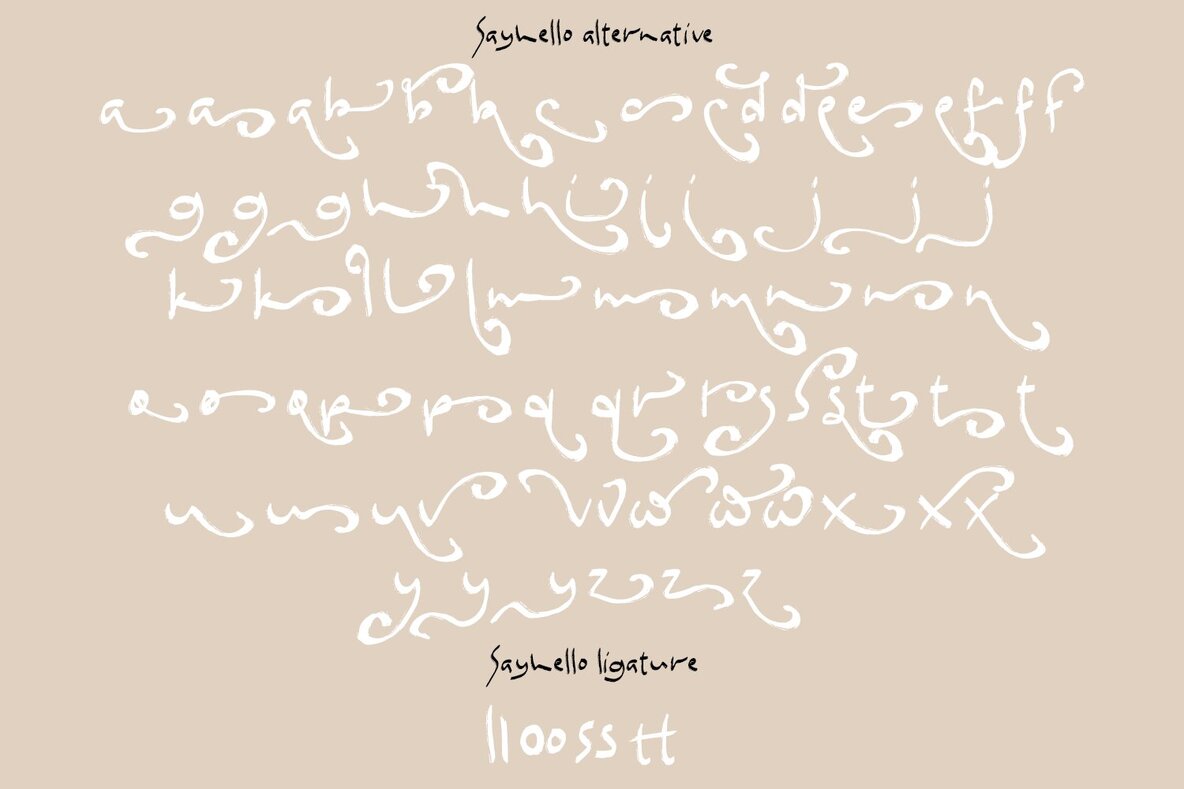 Sayhello alternative
a a a b b b c c c d d e e e f f f
g g g h h h i i i j j j
k k l l l m m m n n n
o o o p p q q r r s s s t t t
u u u v v v w w w x x x
y y y z z z
Sayhello ligature
ll oo ss tt